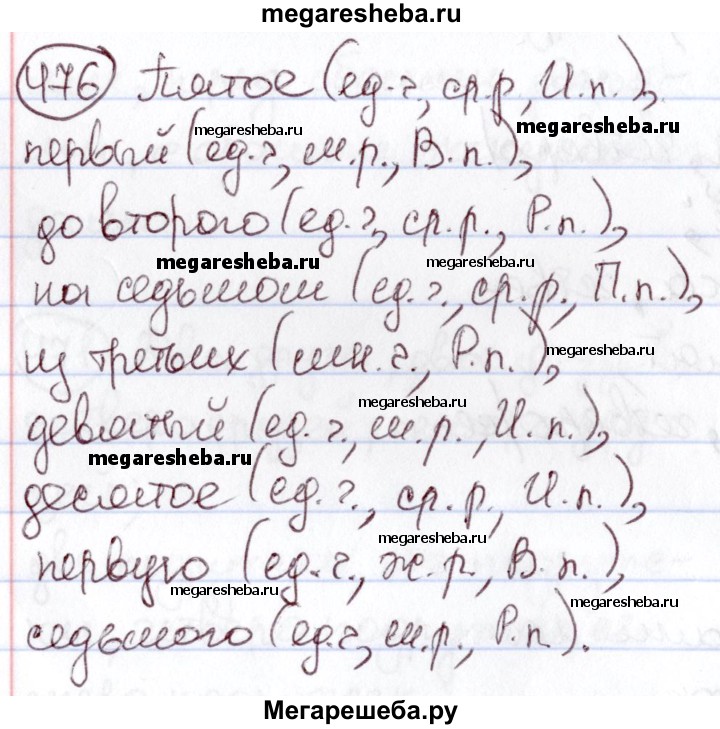 megaresheba.ru
476 Пятое (ед.ч, ср.р, И.п.),
megaresheba.ru megaresheba.ru
первый (ед.ч, м.р., В.п.),
до второго (ед.ч, ср.р., Р.п.),
megaresheba.ru megaresheba.ru
на седьмом (ед.ч, ср.р., П.п.),
megaresheba.ru
из третьих (мн.ч., Р.п.),
megaresheba.ru
девяный (ед.ч, м.р., И.п.),
megaresheba.ru
десятое (ед.ч., ср.р, И.п.),
megaresheba.ru
первую (ед.ч., ж.р., В.п.),
megaresheba.ru megaresheba.ru
седьмого (ед.ч, м.р., Р.п.).
Мегарешеба.ру